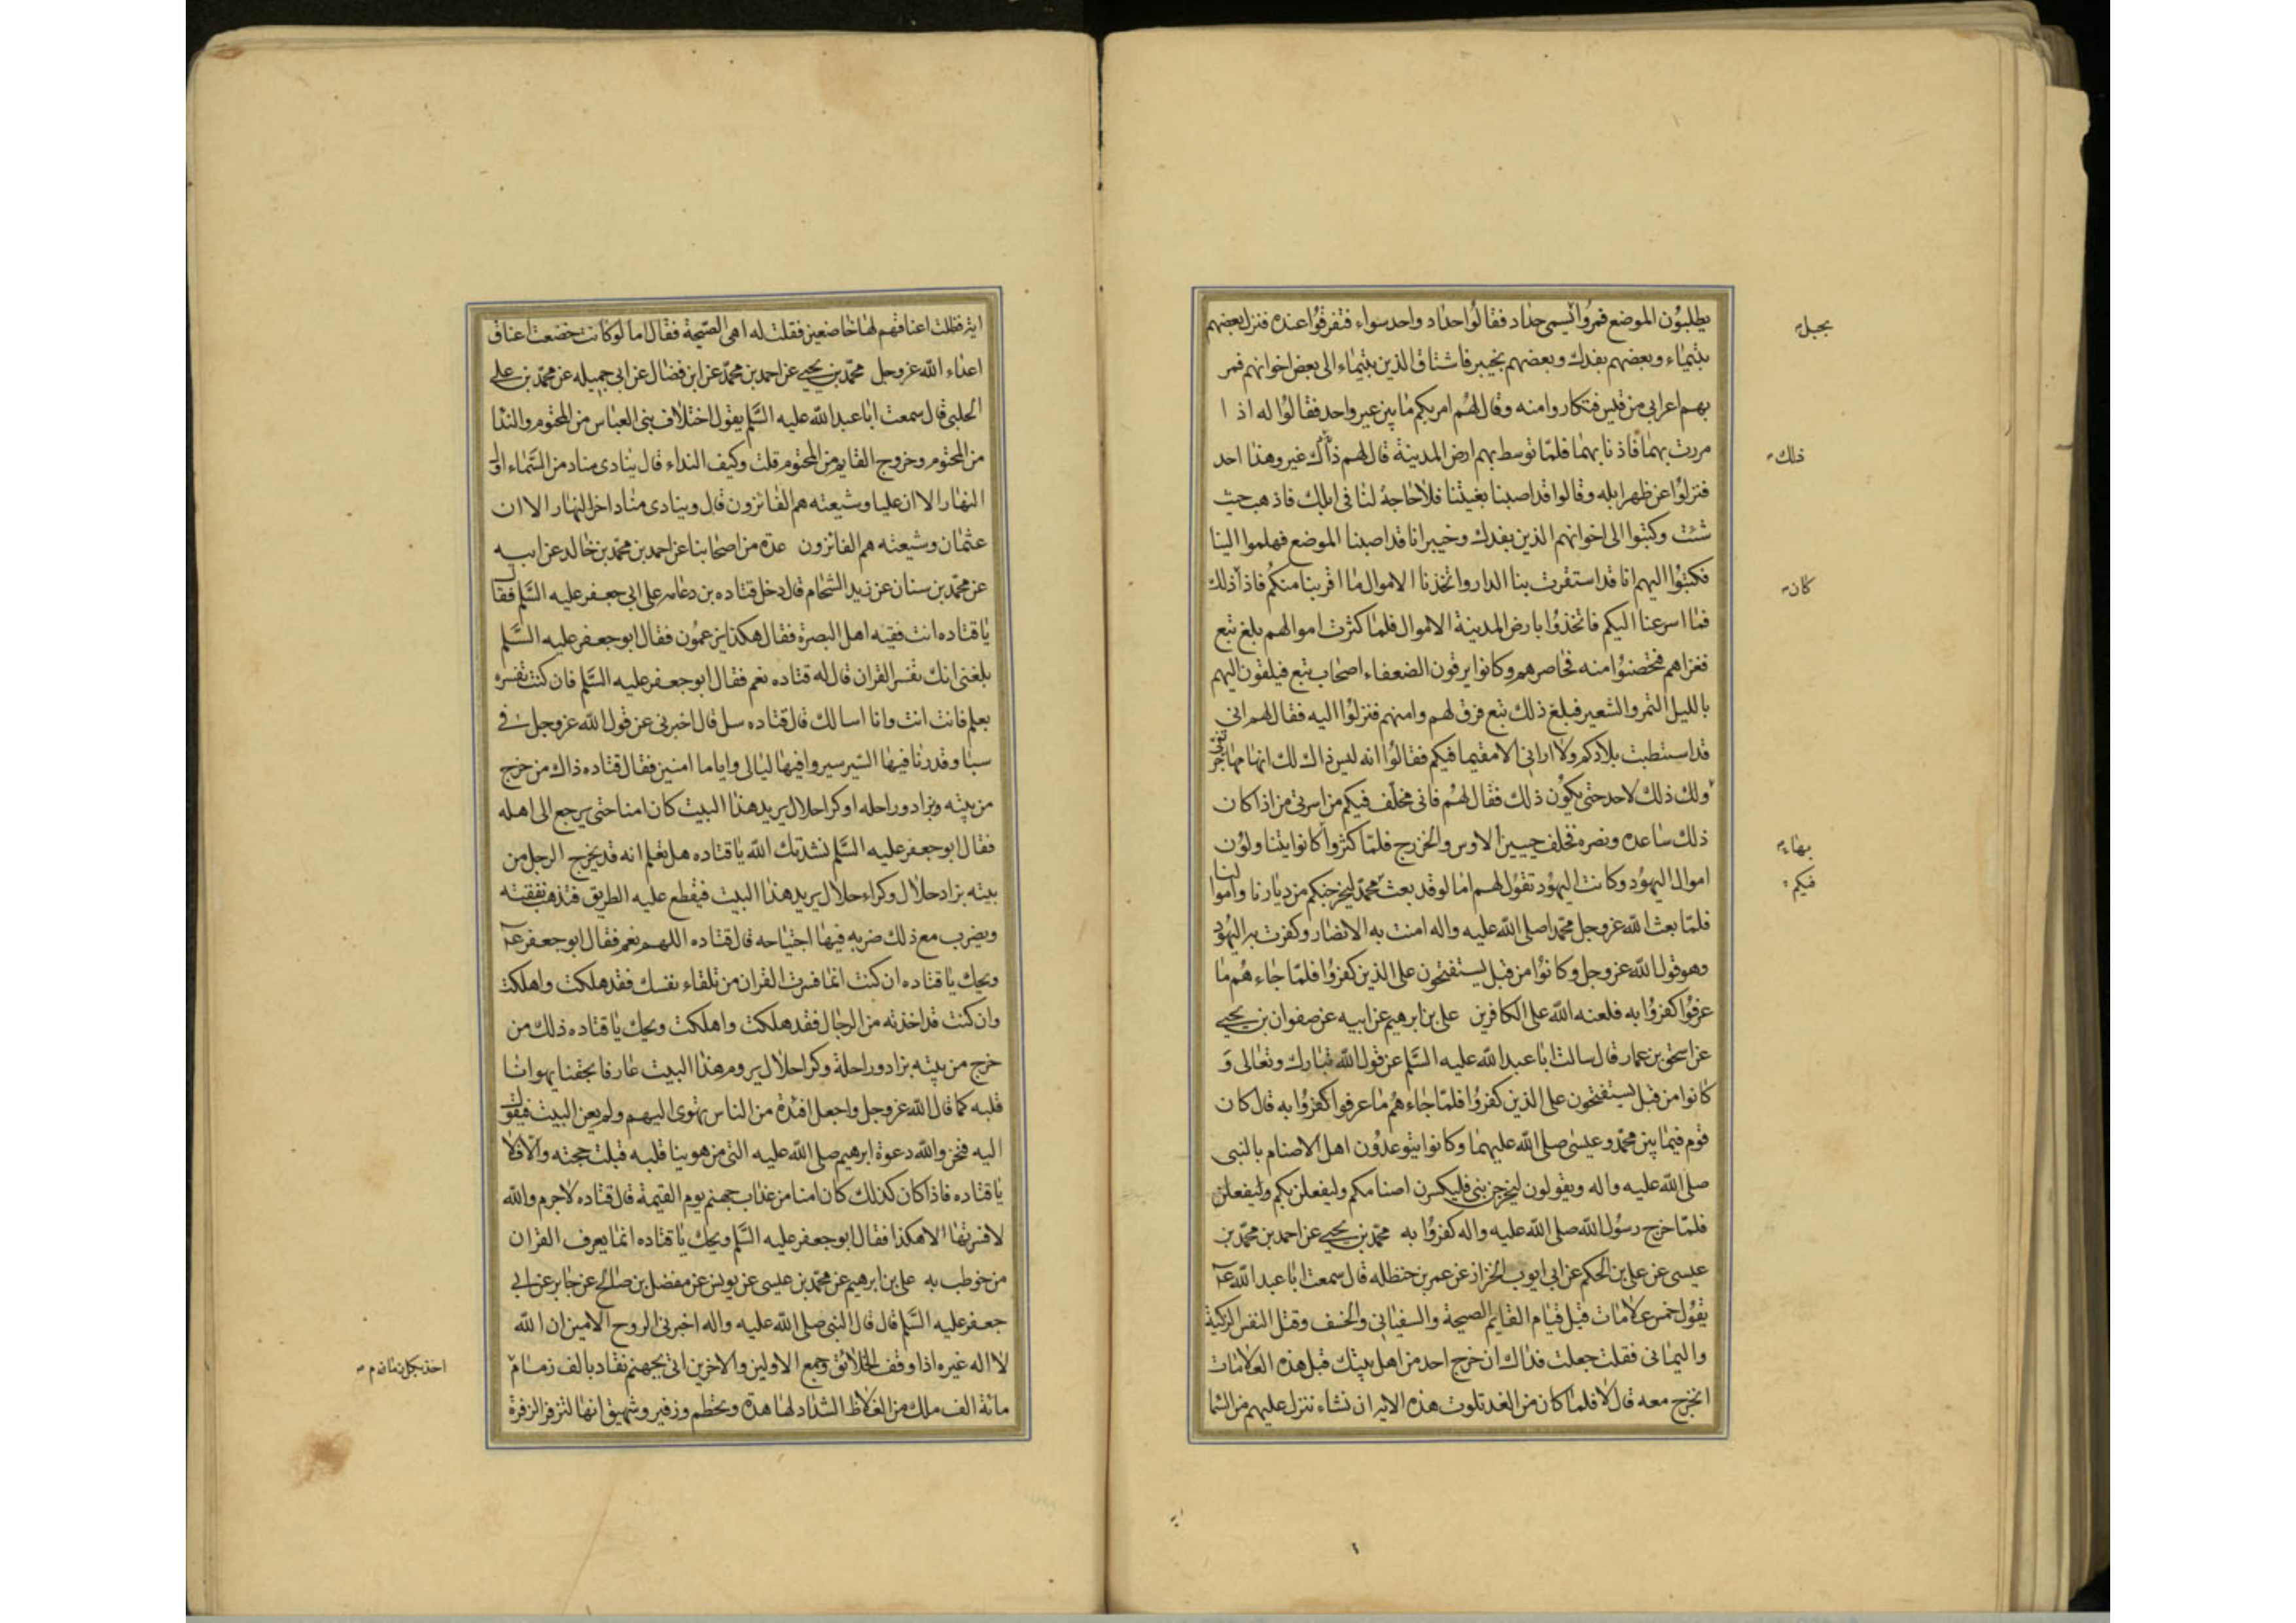 يطلبون الموضع فمروا يسمى حداد فقالوا حداد واحد سواء فتفرقوا عنده فنزل بعضهم
بجبل
بتيماء وبعضهم بفدك وبعضهم بخيبر فاشتاق الذين بتيماء الى بعض اخوانهم فمر
بهم اعرابي من قيس فتكاروا منه وقال لهم امر بكم ما بين عير واحد فقالوا له اذا
مررت بهما فاذنا بهما فلما توسط بهم ارض المدينة قال لهم ذاك عير وهذا احد
ذلك
فنزلوا عن ظهر ابله وقالوا قد اصبنا بغيتنا فلا حاجة لنا في ابلك فاذهب حيث
شئت وكتبوا الى اخوانهم الذين بفدك وخيبر انا قد اصبنا الموضع فهلموا الينا
فكتبوا اليهم انا قد استقرت بنا الدار واتخذنا الاموال ما اقربنا منكم فاذا ذلك
كان
فما اسرعنا اليكم فاتخذوا بارض المدينة الاموال فلما كثرت اموالهم بلغ تبع
فغزاهم فتحصنوا منه فحاصرهم وكانوا يرقون لضعفاء اصحاب تبع فيلقون اليهم
بالليل التمر والشعير فبلغ ذلك تبع فرق لهم وامنهم فنزلوا اليه فقال لهم اني
قد استطبت بلادكم ولا اراني الا مقيما فيكم فقالوا انه ليس ذاك لك انها مهاجر
نبي
وليس ذلك لاحد حتى يكون ذلك فقال لهم فاني مخلف فيكم من اسرتي من اذا كان
ذلك ساعده ونصره فخلف حيين الاوس والخزرج فلما كثروا كانوا يتناولون
بهاء
اموال اليهود وكانت اليهود تقول لهم اما لو قد بعث محمد ليخرجنكم من ديارنا واموالنا
فيكم
فلما بعث الله عز وجل محمدا صلى الله عليه واله امنت به الانصار وكفرت به اليهود
وهو قول الله عز وجل وكانوا من قبل يستفتحون على الذين كفروا فلما جاءهم ما
عرفوا كفروا به فلعنة الله على الكافرين علي بن ابرهيم عن ابيه عن صفوان بن يحيى
عن اسحق بن عمار قال سالت ابا عبد الله عليه السلم عن قول الله تبارك وتعالى و
كانوا من قبل يستفتحون على الذين كفروا فلما جاءهم ما عرفوا كفروا به قال كان
قوم فيما بين محمد وعيسى صلى الله عليهما وكانوا يتوعدون اهل الاصنام بالنبي
صلى الله عليه واله ويقولون ليخرجن نبي فليكسرن اصنامكم وليفعلن بكم وليفعلن
فلما خرج رسول الله صلى الله عليه واله كفروا به محمد بن يحيى عن احمد بن محمد بن
عيسى عن علي بن الحكم عن ابي ايوب الخزاز عن عمر بن حنظله قال سمعت ابا عبد الله ع
يقول خمس علامات قبل قيام القايم الصيحة والسفياني والخسف وقتل النفس الزكية
واليماني فقلت جعلت فداك ان خرج احد من اهل بيتك قبل هذه العلامات
انخرج معه قال لا فلما كان من الغد تلوت هذه الاية ان نشاء ننزل عليهم من السما
اية فظلت اعناقهم لها خاضعين فقلت له اهي الصيحة فقال اما لو كانت خضعت اعناق
اعداء الله عز وجل محمد بن يحيى عن احمد بن محمد عن ابن فضال عن ابي جميله عن محمد بن علي
الحلبي قال سمعت ابا عبد الله عليه السلم يقول اختلاف بني العباس من المحتوم والندا
من المحتوم وخروج القايم من المحتوم قلت وكيف النداء قال ينادي مناد من السماء اول
النهار الا ان عليا وشيعته هم الفائزون قال وينادي مناد اخر النهار الا ان
عثمان وشيعته هم الفائزون عدة من اصحابنا عن احمد بن محمد بن خالد عن ابيه
عن محمد بن سنان عن زيد الشحام قال دخل قتاده بن دعامه على ابي جعفر عليه السلم فقال
يا قتاده انت فقيه اهل البصرة فقال هكذا يزعمون فقال ابو جعفر عليه السلم
بلغني انك تفسر القران قال له قتاده نعم فقال ابو جعفر عليه السلم فان كنت تفسره
بعلم فانت انت وانا اسالك قال قتاده سل قال اخبرني عن قول الله عز وجل في
سبا وقدرنا فيها السير سيروا فيها ليالي واياما امنين فقال قتاده ذاك من خرج
من بيته بزاد وراحله وكرا حلال يريد هذا البيت كان امنا حتى يرجع الى اهله
فقال ابو جعفر عليه السلم نشدتك الله يا قتاده هل تعلم انه قد يخرج الرجل من
بيته بزاد حلال وكراء حلال يريد هذا البيت فيقطع عليه الطريق فتذهب نفقته
ويضرب مع ذلك ضربة فيها اجتياحه قال قتاده اللهم نعم فقال ابو جعفر ع
ويحك يا قتاده ان كنت انما فسرت القران من تلقاء نفسك فقد هلكت واهلكت
وان كنت قد اخذته من الرجال فقد هلكت واهلكت ويحك يا قتاده ذلك من
خرج من بيته بزاد وراحلة وكرا حلال يروم هذا البيت عارفا بحقنا يهوانا
قلبه كما قال الله عز وجل واجعل افئدة من الناس تهوي اليهم ولم يعن البيت فيقول
اليه فنحن والله دعوة ابرهيم صلى الله عليه التي من هوينا قلبه قبلت حجته والا فلا
يا قتاده فاذا كان كذلك كان امنا من عذاب جهنم يوم القيمة قال قتاده لا جرم والله
لا فسرتها الا هكذا فقال ابو جعفر عليه السلم ويحك يا قتاده انما يعرف القران
من خوطب به علي بن ابرهيم عن محمد بن عيسى عن يونس عن مفضل بن صالح عن جابر عن ابي
جعفر عليه السلم قال قال النبي صلى الله عليه واله اخبرني الروح الامين ان الله
لا اله غيره اذا وقف الخلائق وجمع الاولين والاخرين اتي بجهنم تقاد بالف زمام
مائة الف ملك من الغلاظ الشداد لها هدة وتحطم وزفير وشهيق انها لتزفر الزفرة